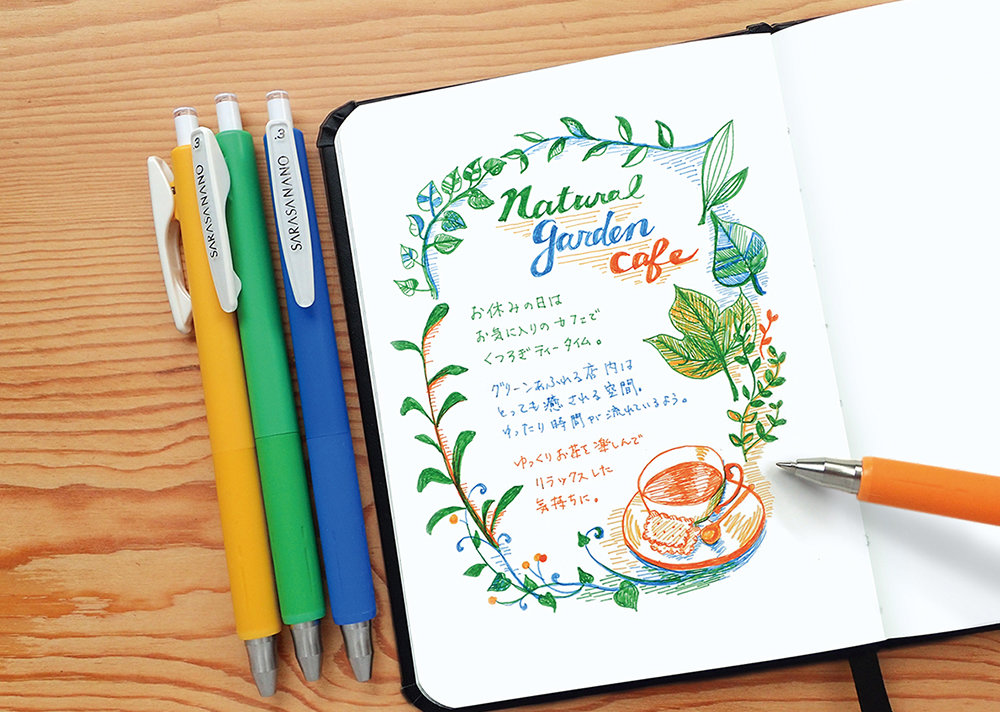 SARASA NANO
0.3
SARASA NANO
0.3
Natural
garden
cafe
お休みの日は
お気に入りのカフェで
くつろぎティータイム。
グリーンあふれる店内は
とっても癒される空間。
ゆったり時間が流れているよう。
ゆっくりお茶を楽しんで
リラックスした
気持ちに。